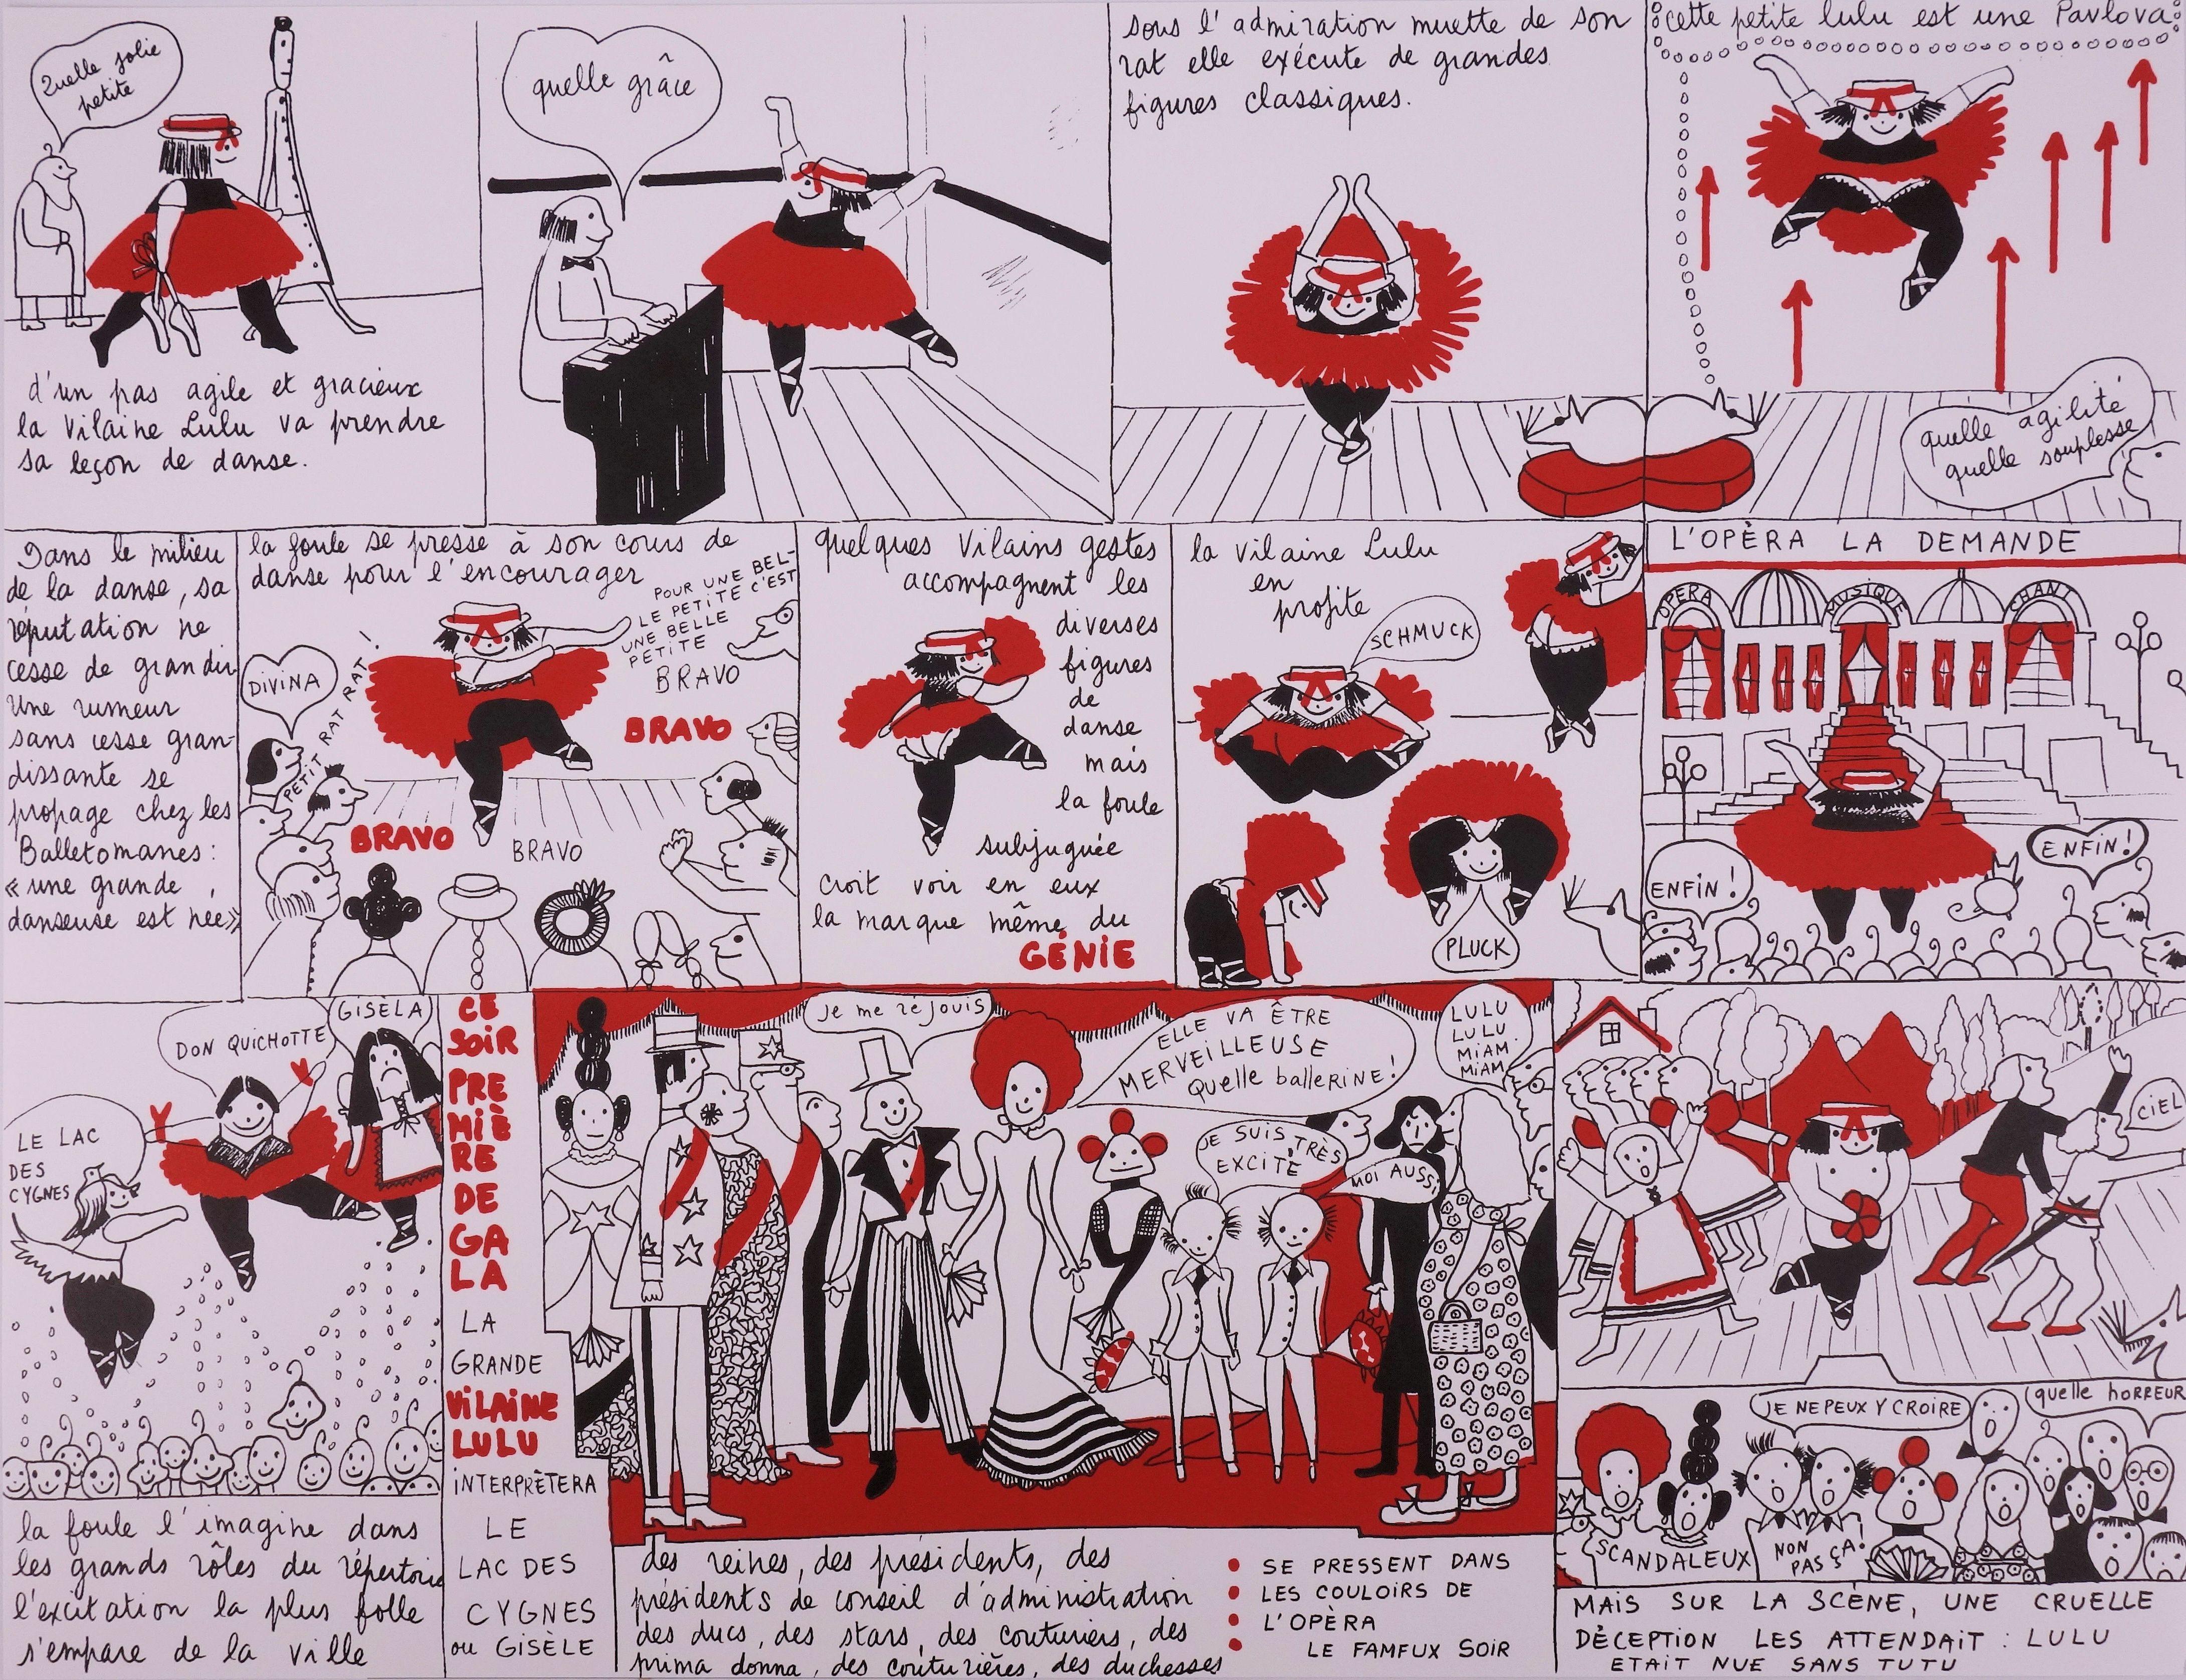 Quelle jolie
petite
d'un pas agile et gracieux
la Vilaine Lulu va prendre
sa leçon de danse.
quelle grâce
sous l'admiration muette de son
rat elle exécute de grandes
figures classiques.
cette petite lulu est une Pavlova
quelle agilité
quelle souplesse
Dans le milieu
de la danse, sa
réputation ne
cesse de grandir
Une rumeur
sans cesse gran-
dissante se
propage chez les
Balletomanes :
« une grande
danseuse est née»
la foule se presse à son cours de
danse pour l'encourager
POUR UNE BEL-
LE PETITE C'EST
UNE BELLE
PETITE
BRAVO
DIVINA
PETIT RAT RAT !
BRAVO
BRAVO
BRAVO
quelques Vilains gestes
accompagnent les
diverses
figures
de
danse
mais
la foule
subjuguée
croit voir en eux
la marque même du
GÉNIE
la vilaine Lulu
en
profite
SCHMUCK
PLUCK
L'OPÈRA LA DEMANDE
OPERA
MUSIQUE
CHANT
ENFIN !
ENFIN !
LE LAC
DES
CYGNES
DON QUICHOTTE
GISÈLA
la foule l'imagine dans
les grands rôles du répertoire
l'excitation la plus folle
s'empare de la ville
CE
SOIR
PRE
MIÈ
RE
DE
GA
LA
LA
GRANDE
VILAINE
LULU
INTERPRÈTERA
LE
LAC DES
CYGNES
ou GISÈLE
Je me réjouis
ELLE VA ÊTRE
MERVEILLEUSE
Quelle ballerine!
LULU
LULU
MIAM
MIAM
JE SUIS TRÈS
EXCITÉ
MOI AUSSI
des reines, des présidents, des
présidents de conseil d'administration
des ducs, des stars, des couturiers, des
prima donna, des couturières, des duchesses
SE PRESSENT DANS
LES COULOIRS DE
L'OPÈRA
LE FAMEUX SOIR
CIEL
JE NE PEUX Y CROIRE
quelle horreur
SCANDALEUX
NON
PAS ÇA!
MAIS SUR LA SCÈNE, UNE CRUELLE
DÉCEPTION LES ATTENDAIT : LULU
ETAIT NUE SANS TUTU